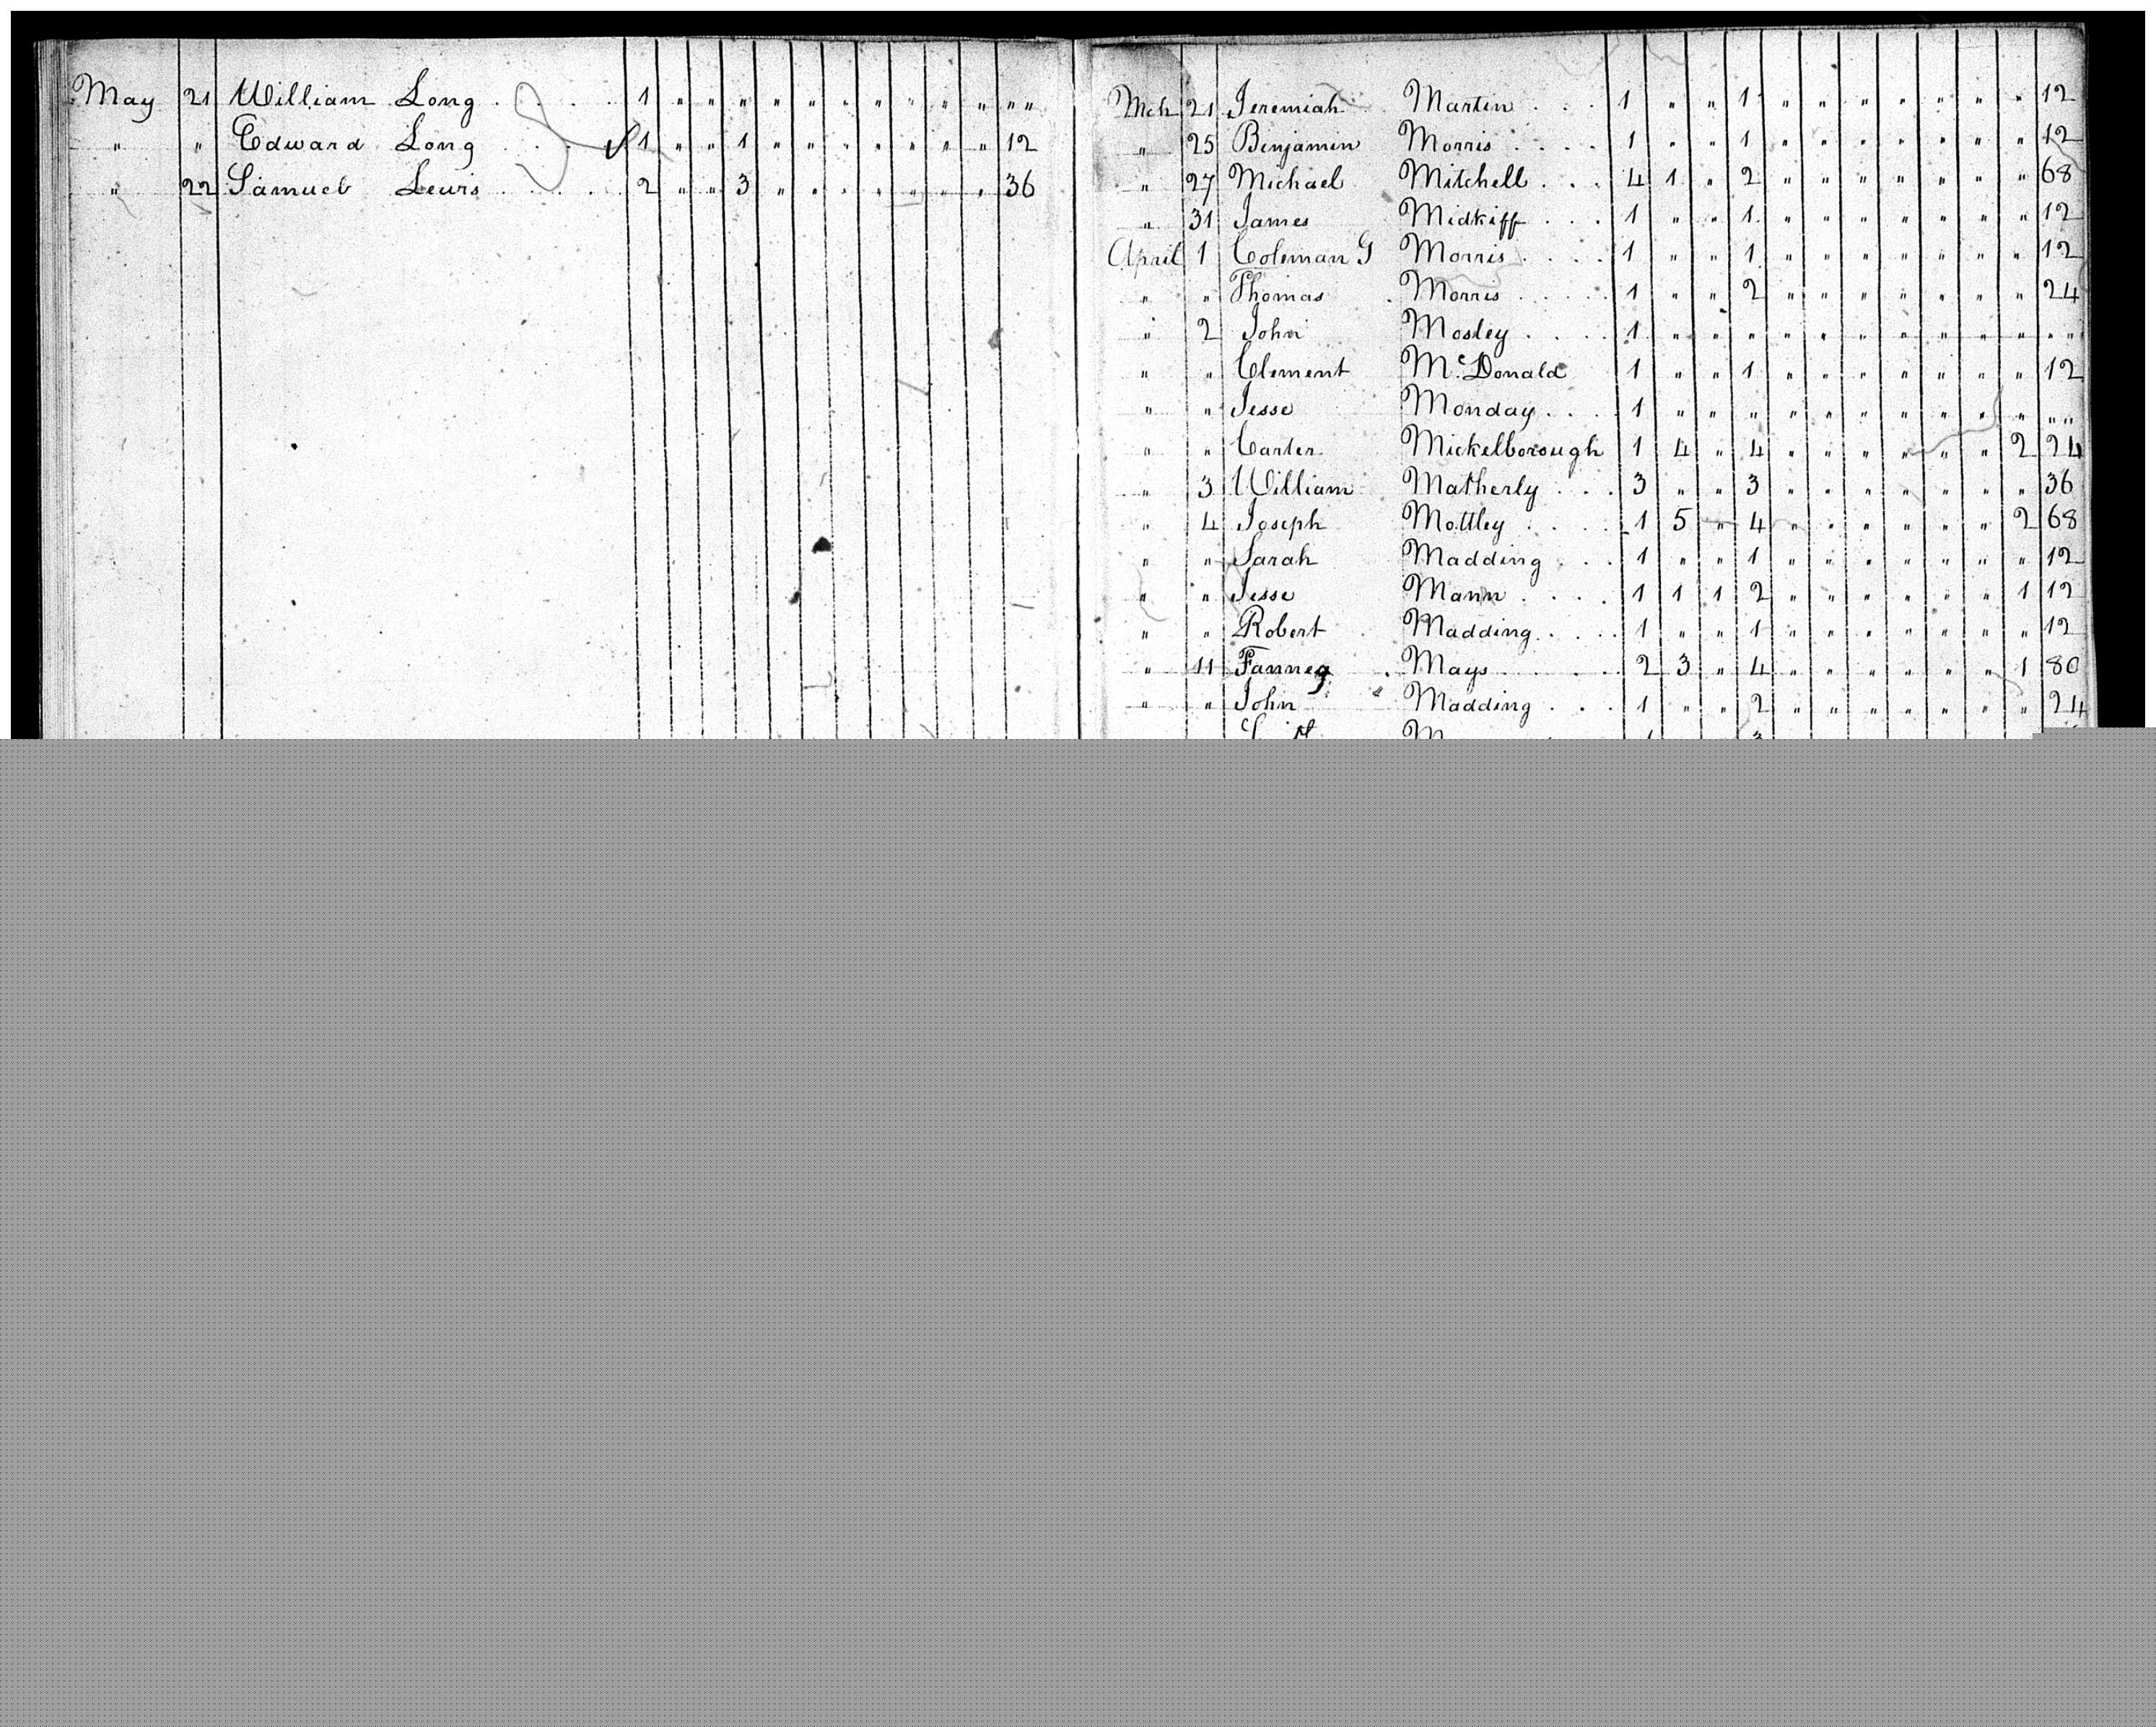 May 21 William Long . . . . 1 " " " " " " " " " " " "
" " Edward Long . . . ✓ 1 " " 1 " " " " " " " 12
" 22 Samuel Lewis . . . . . 2 " " 3 " " " " " " " 36
Mch 21 Jeremiah Martin . . . 1 " " 1 " " " " " " " 12
" 25 Benjamin Morris . . . . 1 " " 1 " " " " " " " 12
" 27 Michael Mitchell . . . 4 1 " 2 " " " " " " " 68
" 31 James Midkiff . . . 1 " " 1 " " " " " " " 12
April 1 Coleman G Morris . . . . 1 " " 1 " " " " " " " 12
" " Thomas Morris . . . . . 1 " " 2 " " " " " " " 24
" 2 John Mosley . . . . 1 " " " " " " " " " " " "
" " Clement McDonald 1 " " 1 " " " " " " " 12
" " Jesse Monday . . . . 1 " " " " " " " " " " " "
" " Carter Mickelborough 1 4 " 4 " " " " " " 2 24
" 3 William Matherly . . . 3 " " 3 " " " " " " " 36
" 4 Joseph Mottley . . . . 1 5 " 4 " " " " " " 2 68
" " Sarah Madding . . . 1 " " 1 " " " " " " " 12
" " Jesse Mann . . . . 1 1 1 2 " " " " " " 1 12
" " Robert Madding . . . . 1 " " 1 " " " " " " " 12
" 11 Fanney Mays . . . . 2 3 " 4 " " " " " " 1 80
" " John Madding . . . 1 " " 2 " " " " " " " 24